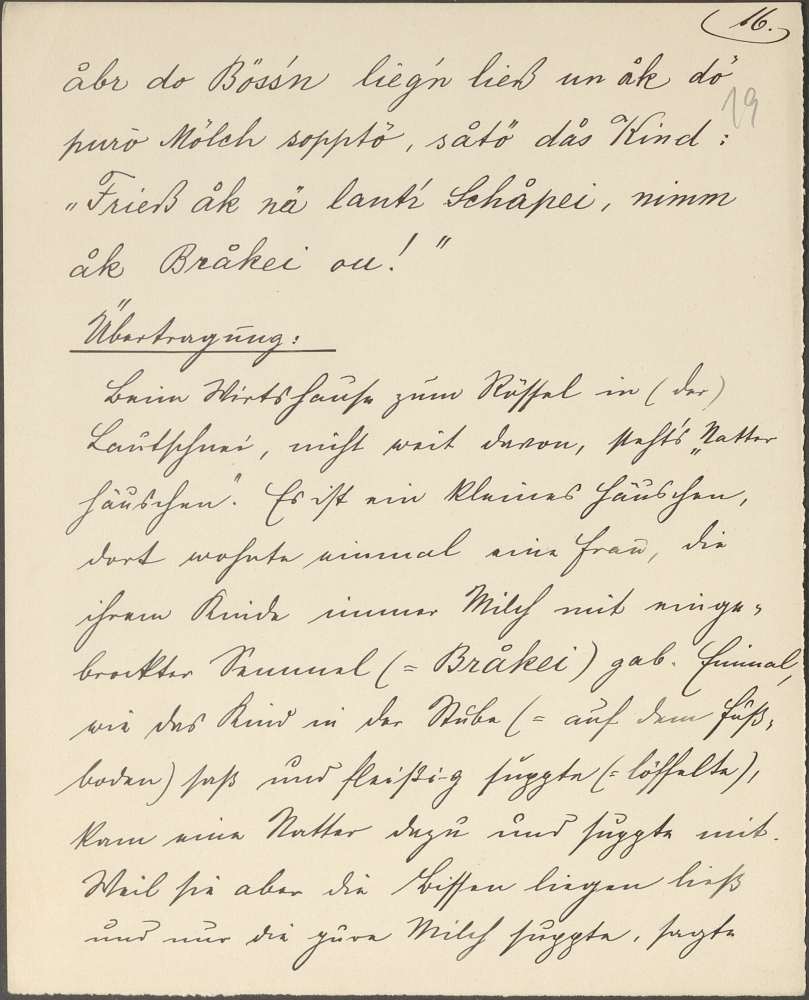 16.
åbr do Böss'n lieg'n ließ un åk dö
19
purö Mölch sopptö, såtö dås Kind:
„Frieß åk nä lautr Schåpei, nimm
åk Bråkei ou!"
Übertragung:
Beim Wirtshause zum Rössel in (der)
Lautschnei, nicht weit davon, steht's „Natter
häuschen". Es ist ein kleines Häuschen,
dort wohnte einmal eine Frau, die
ihrem Kinde immer Milch mit einge-
brockter Semmel (= Bråkei) gab. Einmal,
wie das Kind in der Stube (= auf dem Fuß-
boden) saß und fleißig suppte (= löffelte),
kam eine Natter dazu und suppte mit.
Weil sie aber die Bissen liegen ließ
und nur die pure Milch suppte, sagte